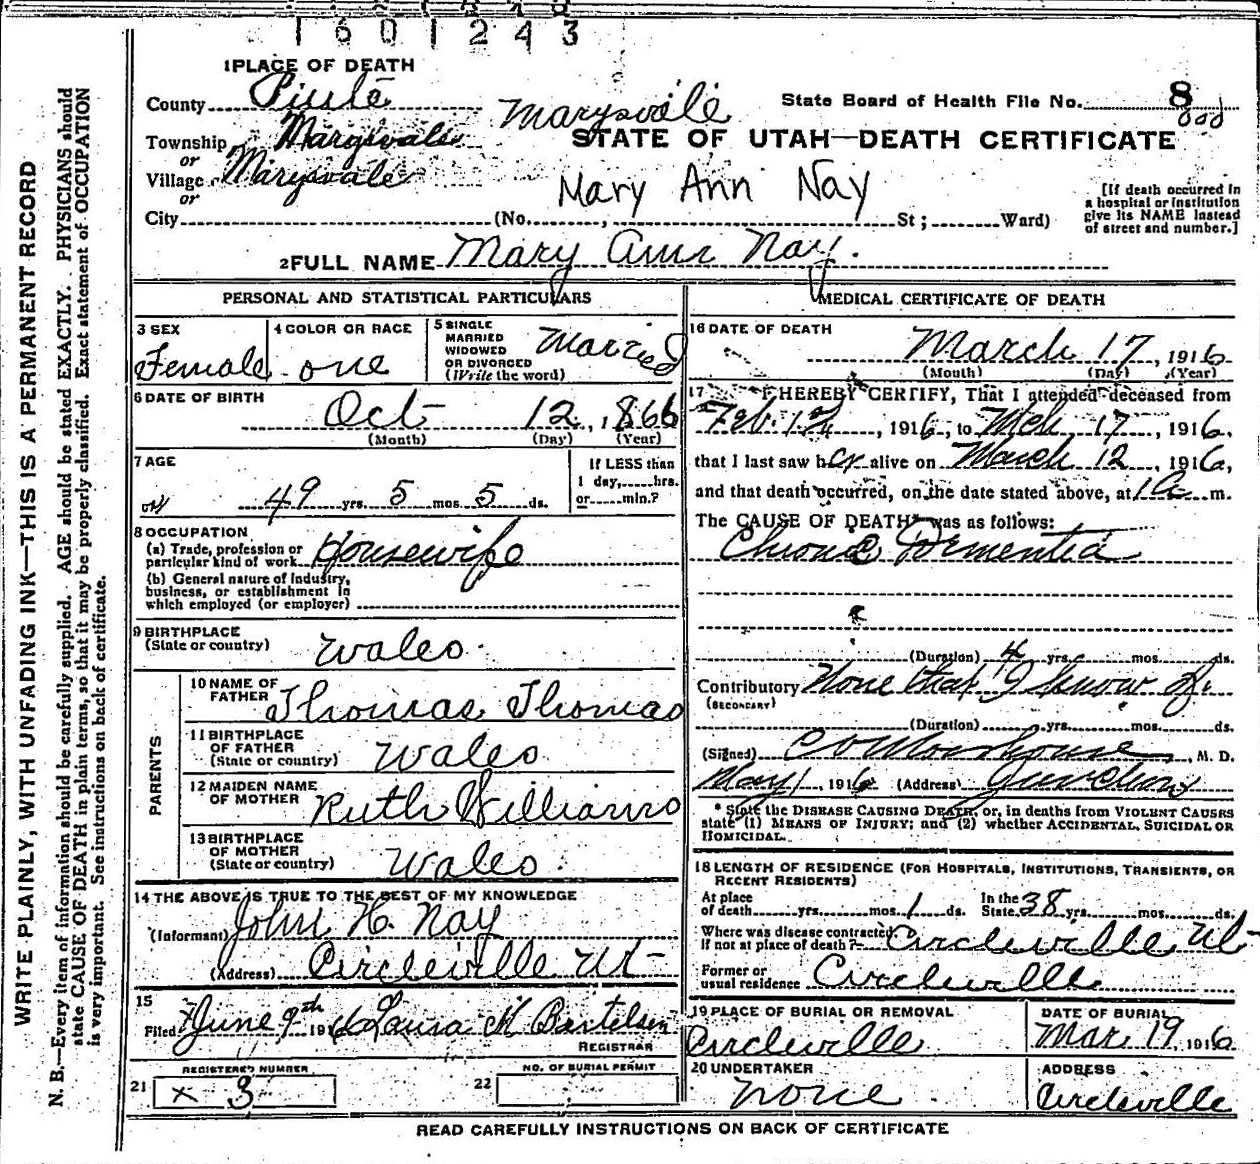 1601243
1 PLACE OF DEATH
County Piute
Marysvale
State Board of Health File No. 8
Township Marysvale
or
STATE OF UTAH—DEATH CERTIFICATE
Village Marysvale
or
Mary Ann Nay
[If death occurred in
a hospital or institution
give its NAME instead
of street and number.]
City (No. , St; Ward)
2 FULL NAME Mary Ann Nay.
PERSONAL AND STATISTICAL PARTICULARS
3 SEX
Female
4 COLOR OR RACE
one
5 SINGLE
MARRIED
WIDOWED
OR DIVORCED
(Write the word)
Married
6 DATE OF BIRTH
Oct 12, 1866
(Month) (Day) (Year)
7 AGE
49 yrs. 5 mos. 5 ds.
If LESS than
1 day, hrs.
or min.?
8 OCCUPATION
(a) Trade, profession or
particular kind of work Housewife
(b) General nature of industry,
business, or establishment in
which employed (or employer)
9 BIRTHPLACE
(State or country) Wales
PARENTS
10 NAME OF
FATHER Thomas Thomas
11 BIRTHPLACE
OF FATHER
(State or country) Wales
12 MAIDEN NAME
OF MOTHER Ruth Williams
13 BIRTHPLACE
OF MOTHER
(State or country) Wales
14 THE ABOVE IS TRUE TO THE BEST OF MY KNOWLEDGE
(Informant) John H. Nay
(Address) Circleville Ut
15
Filed June 9th 1916 Laura M Bertelsen
REGISTRAR
REGISTERED NUMBER
21 x 3
NO. OF BURIAL PERMIT
22
MEDICAL CERTIFICATE OF DEATH
16 DATE OF DEATH
March 17, 1916
(Month) (Day) (Year)
17 I HEREBY CERTIFY, That I attended deceased from
Feb. 12, 1916, to Mch 17, 1916,
that I last saw her alive on March 12, 1916,
and that death occurred, on the date stated above, at m.
The CAUSE OF DEATH* was as follows:
Chronic Dementia
(Duration) 4 yrs. mos. ds.
Contributory None that I know of.
(SECONDARY)
(Duration) yrs. mos. ds.
(Signed) , M. D.
May 1, 1916 (Address) Junction
* State the DISEASE CAUSING DEATH, or, in deaths from VIOLENT CAUSES
state (1) MEANS OF INJURY; and (2) whether ACCIDENTAL, SUICIDAL OR
HOMICIDAL.
18 LENGTH OF RESIDENCE (FOR HOSPITALS, INSTITUTIONS, TRANSIENTS, OR
RECENT RESIDENTS)
At place
of death yrs. mos. 1 ds.
In the
State 38 yrs. mos. ds.
Where was disease contracted,
If not at place of death? Circleville Ut
Former or
usual residence Circleville
19 PLACE OF BURIAL OR REMOVAL
Circleville
DATE OF BURIAL
Mar. 19, 1916
20 UNDERTAKER
none
ADDRESS
Circleville
READ CAREFULLY INSTRUCTIONS ON BACK OF CERTIFICATE
WRITE PLAINLY, WITH UNFADING INK—THIS IS A PERMANENT RECORD
N. B.—Every item of information should be carefully supplied. AGE should be stated EXACTLY. PHYSICIANS should
state CAUSE OF DEATH in plain terms, so that it may be properly classified. Exact statement of OCCUPATION
is very important. See instructions on back of certificate.